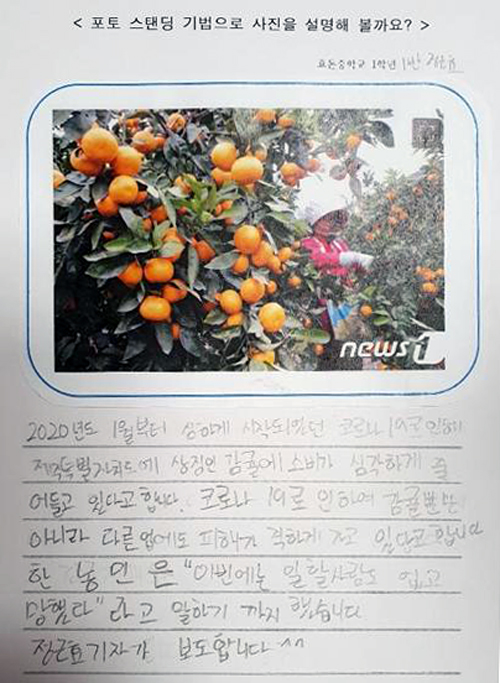 < 포토 스탠딩 기법으로 사진을 설명해 볼까요? >
효돈중학교 1학년 1반 정근효
news1
2020년도 1월부터 심하게 시작되었던 코로나 19로 인하여
제주특별자치도에 상징인 감귤에 소비가 심각하게 줄
어들고 있다고 합니다. 코로나 19로 인하여 감귤뿐만
아니라 다른 업에도 피해가 격하게 가고 있다고 합니다
한 농민은 "이번에는 일할사람도 없고
망했다"라고 말하기 까지 했습니다
정근효기자가 보도합니다 ^^